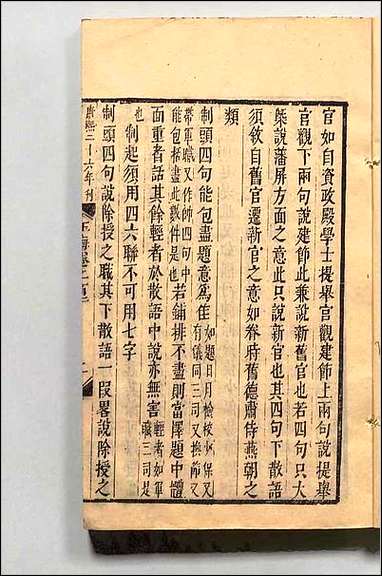 官如自資政殿學士提舉宮觀建節上兩句說提舉
宮觀下兩句說建節此乘說新舊官也若四句只大
槩說藩屏方面之意此只說新官也其四句下散語
須敘自舊官遷新官之意如眷時舊德肅侍燕朝之
類
制頭四句能包盡題意爲佳如題目月檢校少保又
有儀同三司又換節又
帶軍職又作帥四句中
能包括盡此數件是也若鋪排不盡則當擇題中體
面重者話其餘輕者於散語中說亦無害輕者如軍
職三司是
也制起須用四六聯不可用七字
制頭四句說除授之職其下散語一段畧說除授之
康熙二十六年刊
玉海卷二百二